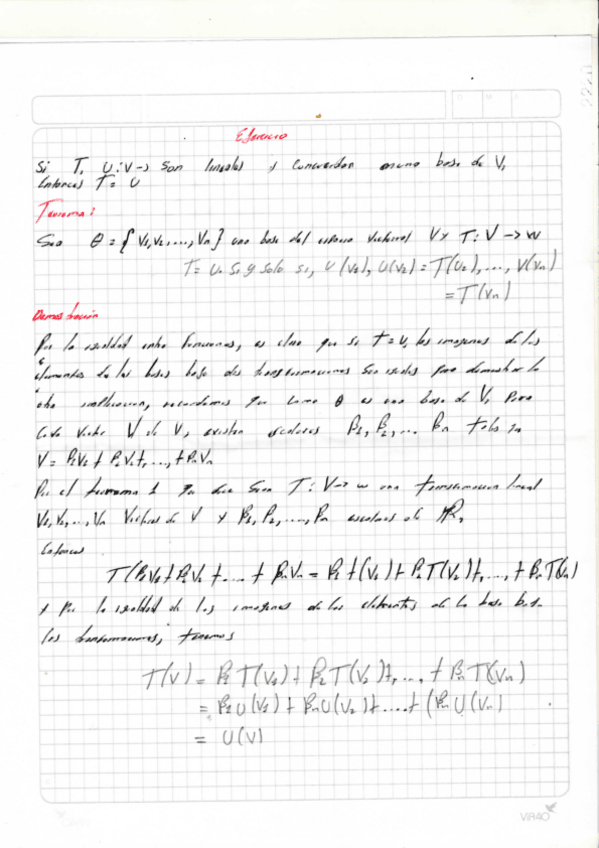 Ejercicio
Si T, U : V → son lineales y concuerdan en una base de V,
Entonces T = U
Teorema:
Sea θ = { V1, V2, ..., Vn } una base del espacio vectorial V y T : V → W
T = U. Si y solo si, U (V2), U(V2) = T(U2), ..., V(Vn)
= T(Vn)
Demostración
Por la igualdad entre funciones, es claro que si T = U, las imagenes de los
elementos de las bases bajo las transformaciones son iguales para demostrar la
otra implicacion, recordemos que como θ es una base de V, para
cada vector V de V, existen escalares β1, β2, ... βn tales que
V = β1V1 + β2V2 +, ..., + βnVn
Por el teorema 1 que dice Sean T : V → W una transformacion lineal
V1, V2, ..., Vn Vectores de V y β1, β2, ..., βn escalares de R,
Entonces
T(β1V1 + β2V2 + .... + βnVn = β1 t(V1) + β2T(V2)+, ..., + βnT(Vn)
y por la igualdad de las imagenes de los elementos de la base bajo
las transformaciones, tenemos
T(V) = β1T(V1) + β2T(V2)+, ..., + βnT(Vn)
= β1U(V1) + βnU(V2) + .... + (βnU(Vn)
= U(V)
VIR4O